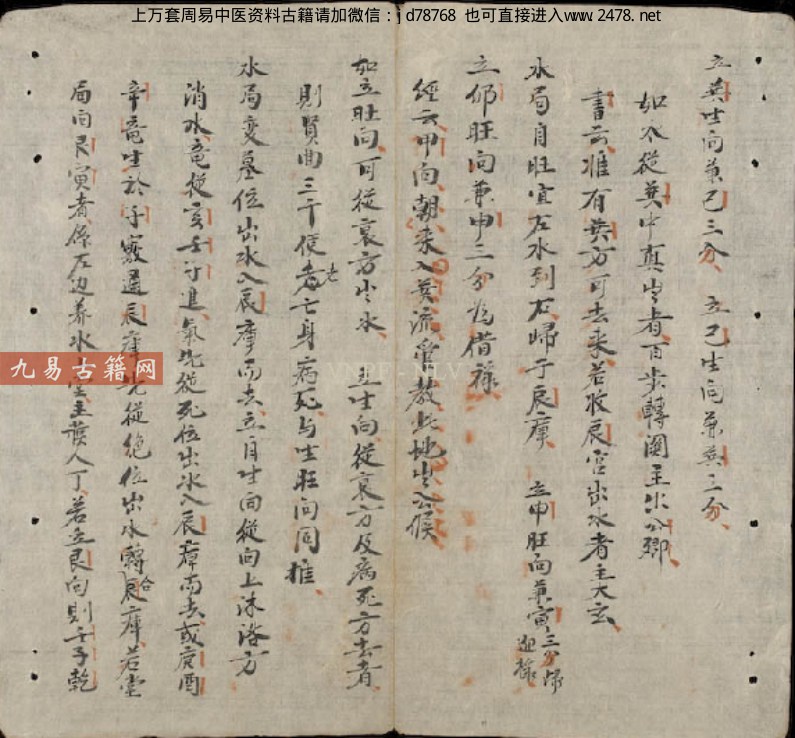 上万套周易中医资料古籍请加微信：jd78768 也可直接进入www.2478.net
立巽生向兼巳三分、立巳生向兼巽三分、
如水從巽中真出者百步轉闌主出公卿
書云惟有巽方可去来若收辰宮出水者主大玄
水局自旺宜左水到右歸于辰庫 立申旺向兼寅三分
迎祿
立卯旺向兼申三分為借祿
經云甲向朝来入巽流管教此地出公侯
如立旺向可從衰方出水 立生向從衰方及病死方去者
則賢曲三千便老亡身病死与生旺向同推
水局变墓位出水入辰庫而去立自生向從向上沐浴方
消水竜從亥壬子進氣先從死位出水入辰庫而去或庚酉
辛竜生於子竅通辰庫先從絶位出水轉合辰庫若堂
局向艮寅者係左边养水堂主發人丁若立艮向則壬子乾
九易古籍网